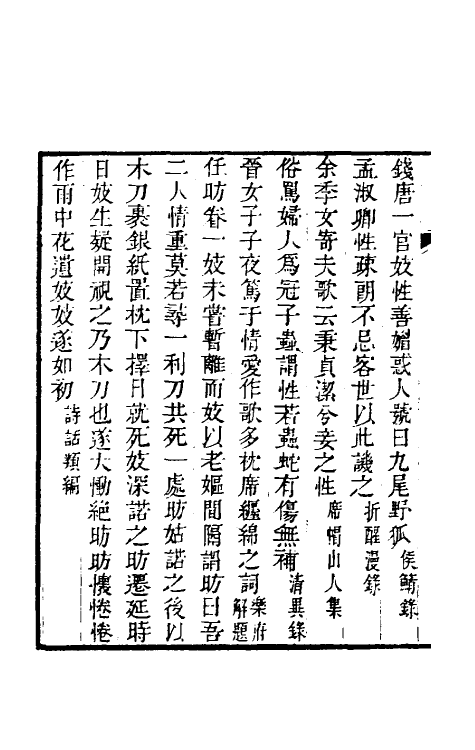 錢唐一官妓性善媚惑人號曰九尾野狐侯鯖錄
孟淑卿性疎朗不忌客世以此譏之折醒漫錄
余季女寄夫歌云秉貞潔兮妾之性席帽山人集
俗罵婦人爲冠子蟲謂性若蟲蛇有傷無補清異錄
晉女子子夜篤于情愛作歌多枕席纏綿之詞樂府解題
任昉眷一妓未嘗暫離而妓以老嫗間隔謂昉曰吾
二人情重莫若尋一利刀共死一處昉姑諾之後以
木刀裹銀紙置枕下擇日就死妓深諾之昉遷延時
日妓生疑開視之乃木刀也遂大慟絶昉昉懷惓惓
作雨中花遺妓妓遂如初詩話類編